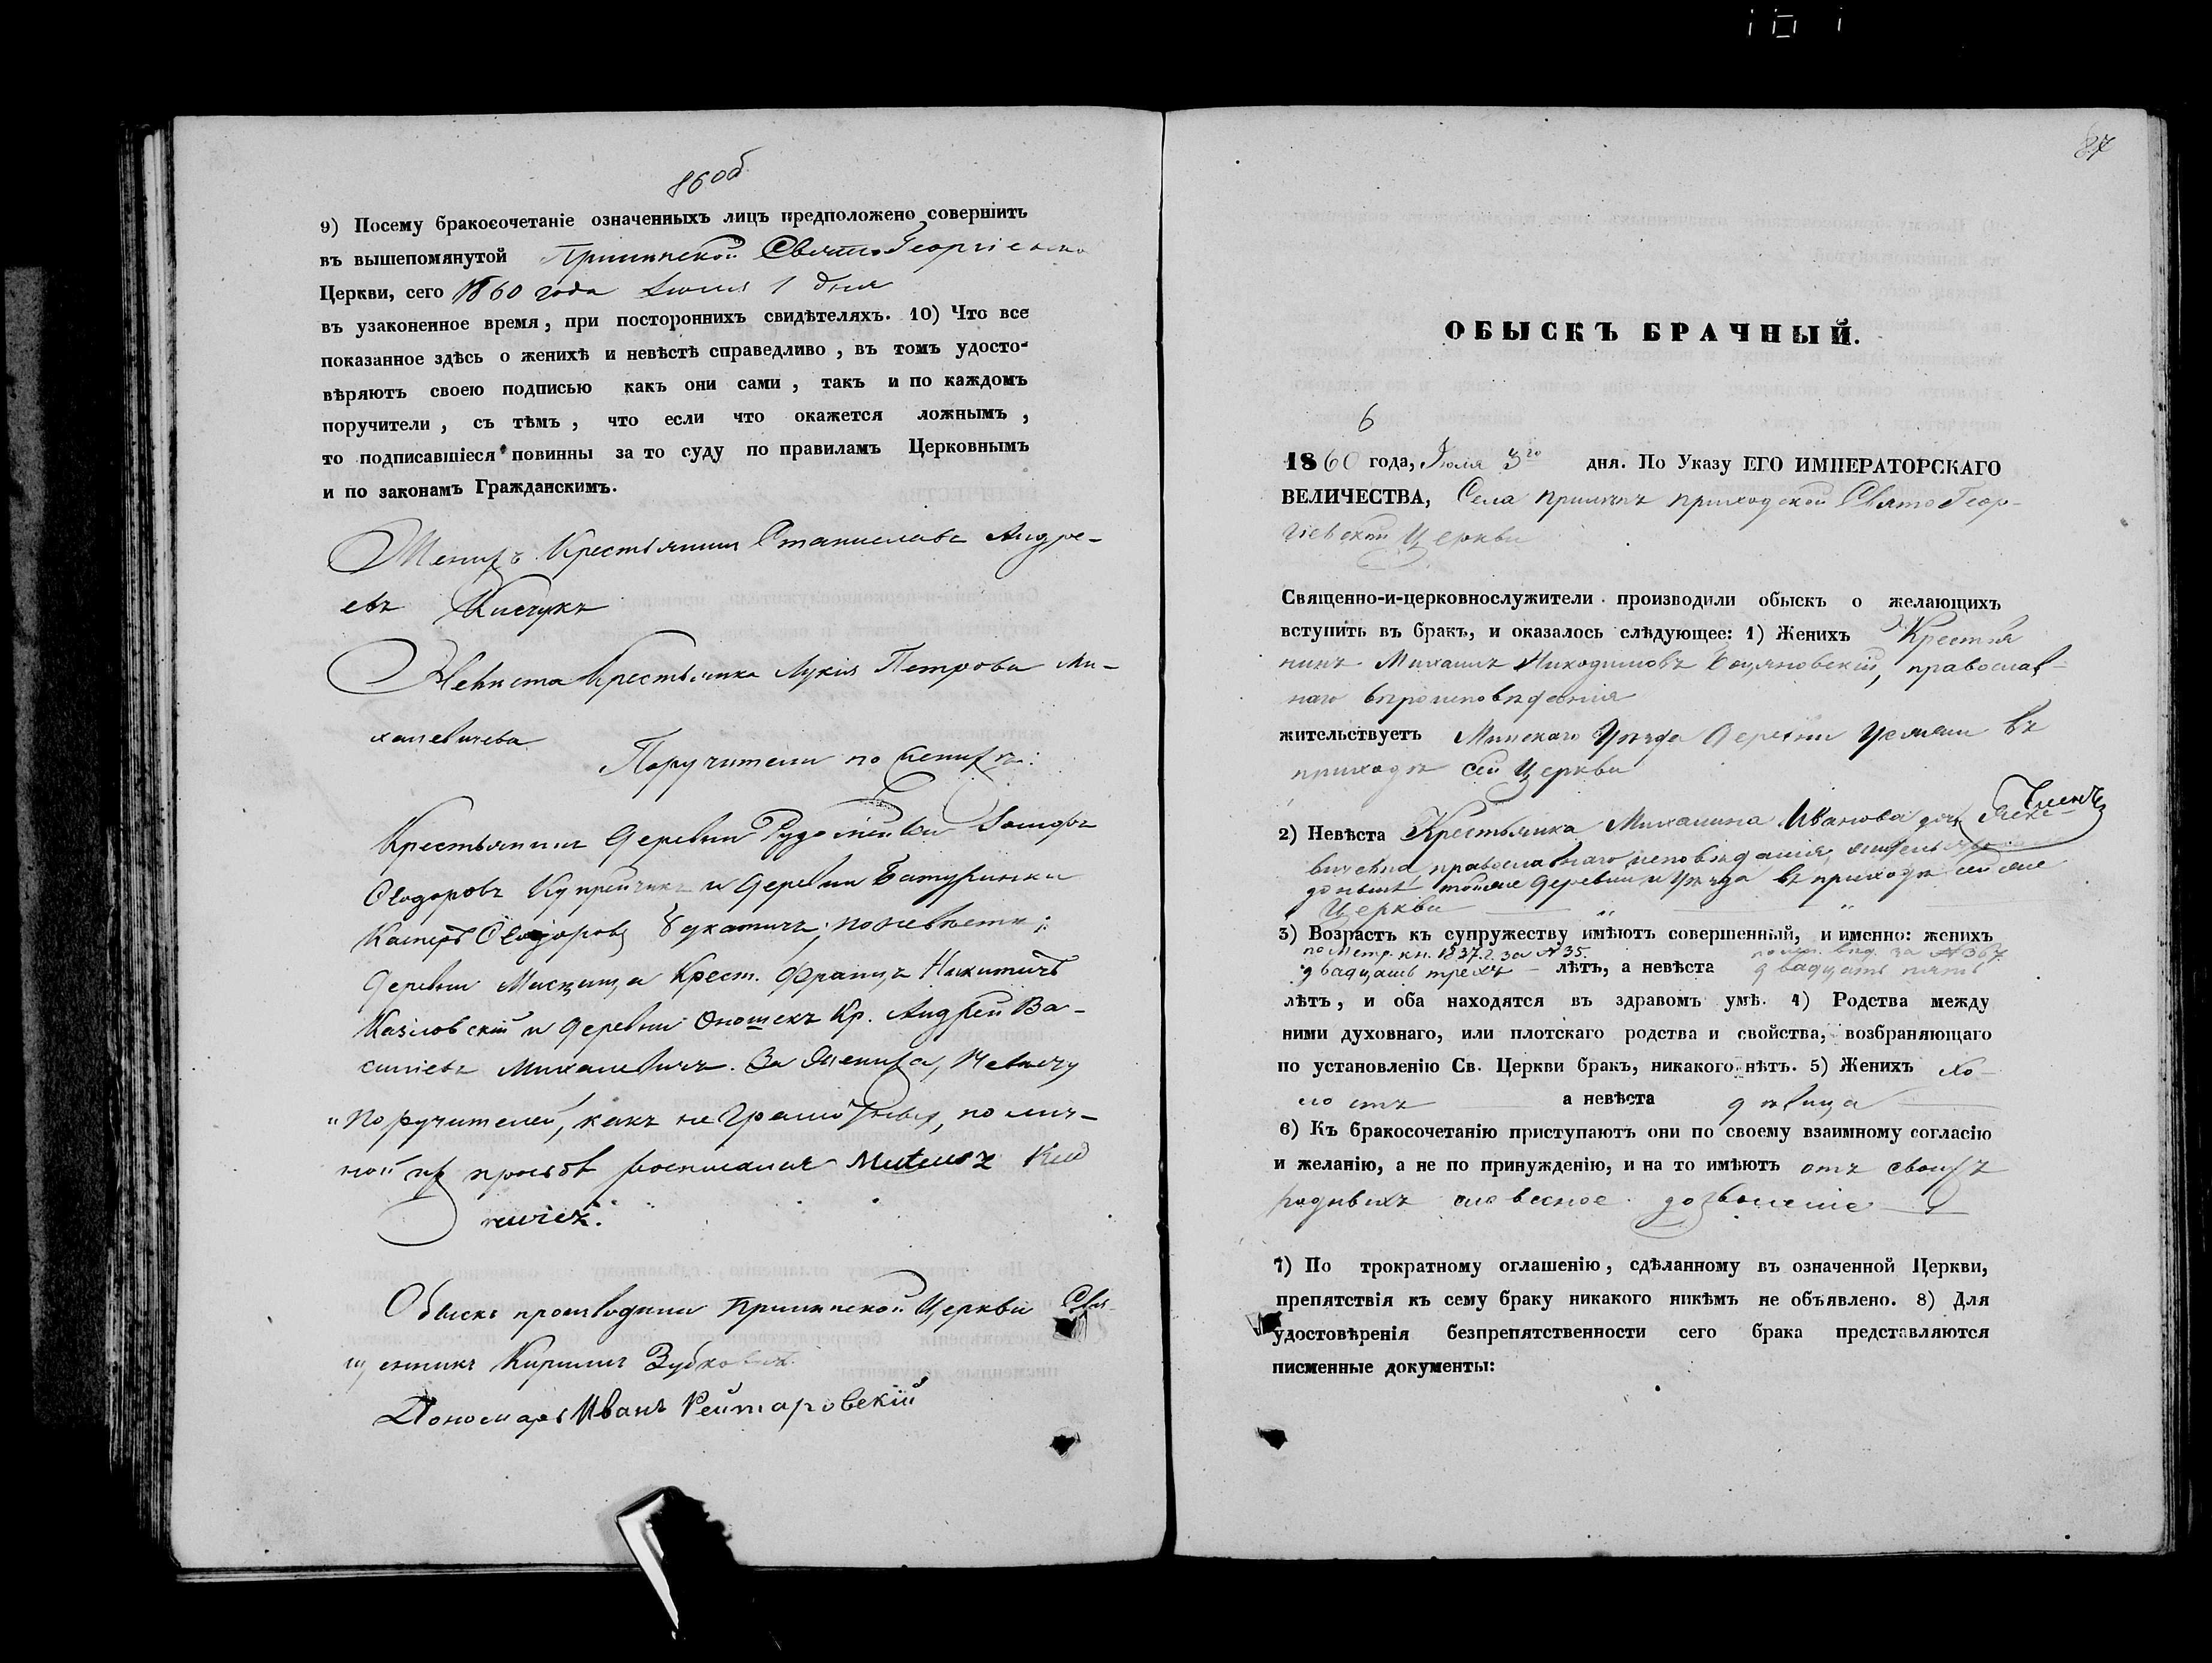 86об
9) Посему бракосочетаніе означенныхъ лицъ предположено совершить
въ вышепомянутой Прилыпской Свято Георгіевско
Церкви, сего 1860 года 1 дня
въ узаконенное время, при постороннихъ свидѣтеляхъ. 10) Что все
показанное здѣсь о женихѣ и невѣстѣ справедливо, въ томъ удосто-
вѣряютъ своею подписью какъ они сами, такъ и по каждомъ
поручители, съ тѣмъ, что если что окажется ложнымъ,
то подписавшіеся повинны за то суду по правиламъ Церковнымъ
и по законамъ Гражданскимъ.
Женихъ Крестьянинъ Станиславъ Андре-
евъ
Невѣста Крестьянка Лукія Петрова Ми-
халевичева
Поручители по женихѣ:
Крестьянинъ деревни
Ѳеодоровъ Купрейчикъ и деревни Батуринки
Касперъ Ѳеодоровъ по невѣстѣ:
деревни Крест. Францъ Никитичъ
Казловскій и деревни Кр. Андрей Ва-
силіевъ Михалевичъ. За Жениха, Невѣсту
"поручителей, какъ неграмотныхъ, по лич-
ной ихъ просьбѣ росписался Mateusz
Обыскъ производили Прилыпской Церкви Свя-
щенникъ Кириллъ Зубковичъ
Пономарь Иванъ Рейтаровскій
87
ОБЫСКЪ БРАЧНЫЙ.
6
1860 года, Іюля 3го дня. По Указу ЕГО ИМПЕРАТОРСКАГО
ВЕЛИЧЕСТВА, Села Прилыпъ приходской Свято Геор-
гіевской Церкви
Священно-и-церковнослужители производили обыскъ о желающихъ
вступить въ бракъ, и оказалось слѣдующее: 1) Женихъ Крестья
нинъ Михаилъ Никодимовъ православ-
наго вѣроисповѣданія
жительствуетъ Минскаго Уѣзда деревни въ
приходѣ сей Церкви
2) Невѣста Крестьянка Михалина Иванова дочь
православнаго исповѣданія,
донынѣ тойже деревни и Уѣзда въ приходѣ сей же
Церкви
3) Возрастъ къ супружеству имѣютъ совершенный, и именно: женихъ
по метр. кн. 1837 г. за № 35. за № 367
двадцать трехъ лѣтъ, а невѣста двадцать пять
лѣтъ, и оба находятся въ здравомъ умѣ. 4) Родства между
ними духовнаго, или плотскаго родства и свойства, возбраняющаго
по установленію Св. Церкви бракъ, никакого нѣтъ. 5) Женихъ хо-
лостъ а невѣста дѣвица
6) Къ бракосочетанію приступаютъ они по своему взаимному согласію
и желанію, а не по принужденію, и на то имѣютъ отъ своихъ
родныхъ словесное дозволеніе
7) По трократному оглашенію, сдѣланному въ означенной Церкви,
препятствія къ сему браку никакого никѣмъ не объявлено. 8) Для
удостовѣренія безпрепятственности сего брака представляются
писменные документы: